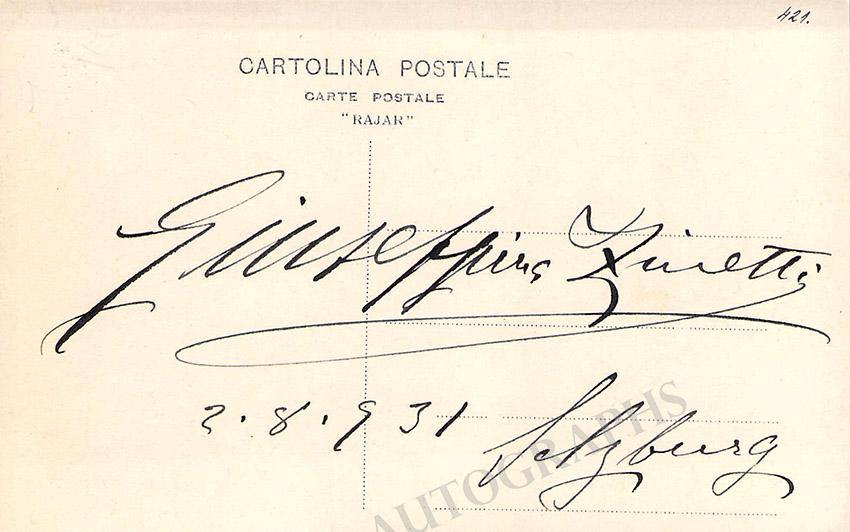 421.
CARTOLINA POSTALE
CARTE POSTALE
"RAJAR"
Giuseppina Zinetti
2.8.931
Salzburg
AUTOGRAPHS